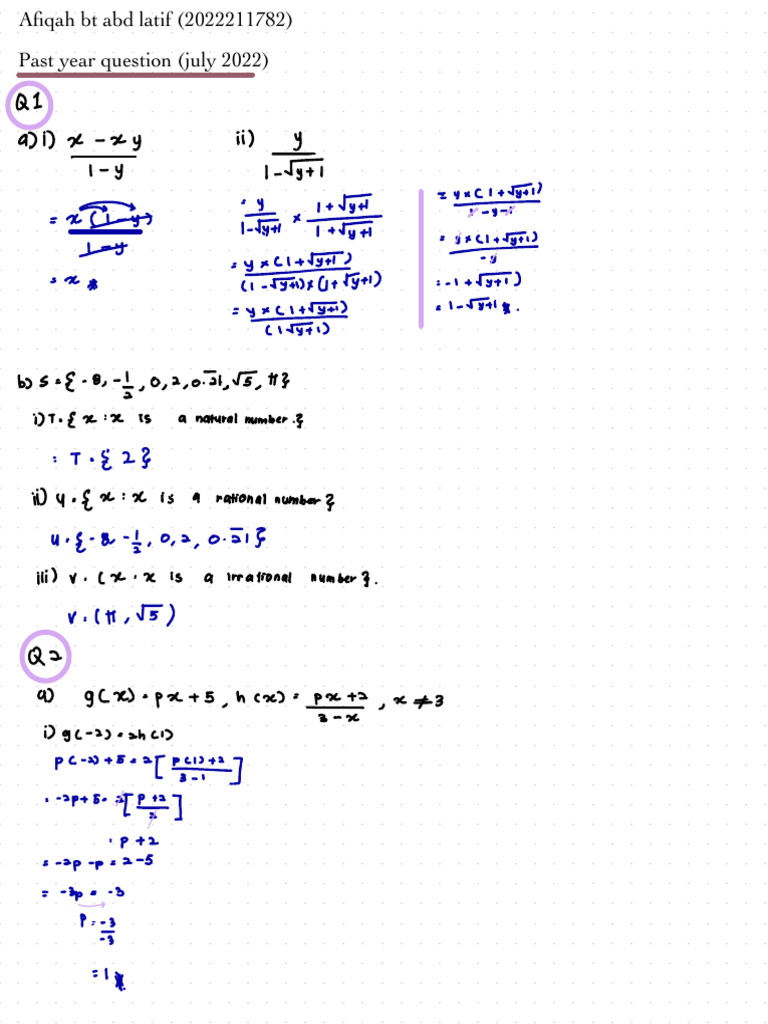 Afiqah bt abd latif (2022211782)
Past year question (july 2022)
Q1
a) i) x - xy / 1 - y
= x(1 - y) / 1 - y
= x
ii) y / 1 - √y+1
= y / 1 - √y+1 × 1 + √y+1 / 1 + √y+1
= y × (1 + √y+1) / (1 - √y+1) × (1 + √y+1)
= y × (1 + √y+1) / (1√y+1)
= y × (1 + √y+1) / 1 - y - 1
= y × (1 + √y+1) / -y
= -1 + √y+1)
= 1 - √y+1.
b) S = {-8, -1/2, 0, 2, 0.2̅1, √5, π}
i) T = {x : x is a natural number.}
: T = {2}
ii) U = {x : x is a rational number}
U = {-8 -1/2, 0, 2, 0.2̅1}
iii) V = (x : x is a irrational number}.
V = (π, √5)
Q2
a) g(x) = px + 5, h(x) = px + 2 / 3 - x, x ≠ 3
i) g(-2) = 2h(1)
p(-2) + 5 = 2[p(1) + 2 / 3 - 1]
= -2p + 5 = 2[p + 2 / 2]
= p + 2
= -2p - p = 2 - 5
= -3p = -3
p = -3 / -3
= 1